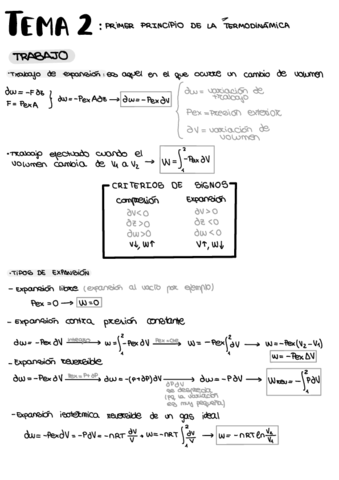 TEMA 2: PRIMER PRINCIPIO DE LA TERMODINÁMICA
TRABAJO
·Trabajo de expansión: es aquel en el que ocurre un cambio de volumen
∂w = -F∂z
F = PexA
∂w = -PexA∂z → ∂w = -Pex∂V
∂w = variación de trabajo
Pex = Presión exterior
∂V = variación de volumen
·Trabajo efectuado cuando el volumen cambia de V₁ a V₂ → W = ∫₁² -Pex∂V
CRITERIOS DE SIGNOS
Compresión Expansión
∂V<0 ∂V>0
∂z>0 ∂z<0
∂w>0 ∂w<0
V↓, W↑ V↑, W↓
·TIPOS DE EXPANSIÓN
- Expansión libre (expansión al vacío por ejemplo)
Pex = 0 → W = 0
- Expansión contra presión constante
∂w = -Pex∂V → w = ∫₁² -Pex∂V → w = -Pex∫₁² ∂V → w = -Pex(V₂-V₁)
w = -Pex ΔV
- Expansión reversible
∂w = -Pex∂V → ∂w = -(P+∂P)∂V → ∂w = -P∂V → Wrev = -∫₁² P∂V
∂P∂V se desprecia (ya la variación es muy pequeña)
- Expansión isotérmica reversible de un gas ideal
∂w = -Pex∂V = -P∂V = -nRT ∂V/V → w = -nRT ∫₁² ∂V/V → W = -nRT ln V₂/V₁